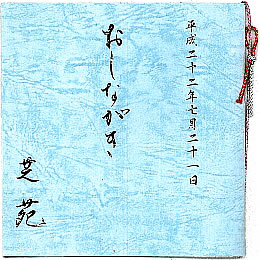 平成二十二年七月二十一日
おしながき
芝苑